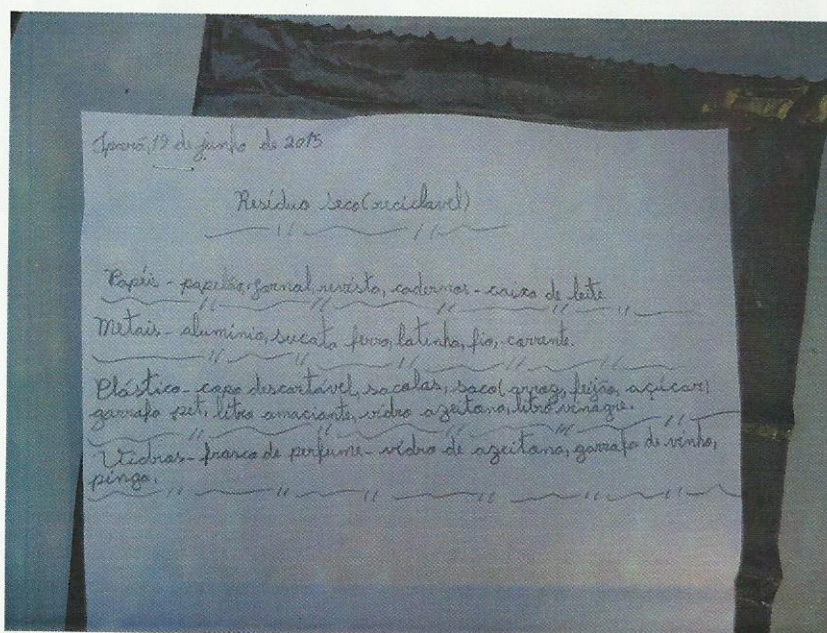 Iporã, 12 de junho de 2015
Resíduo seco (reciclavel)
Papéis - papelão, jornal, revista, cadernos - caixa de leite
Metais - alumínio, sucata ferro, latinha, fio, corrente.
Plástico - copo descartável, sacolas, saco (arroz, feijão, açúcar)
garrafa pet, litro amaciante, vidro azeitona, litro vinagre.
Vidros - frasco de perfume - vidro de azeitona, garrafa de vinho,
pinga.